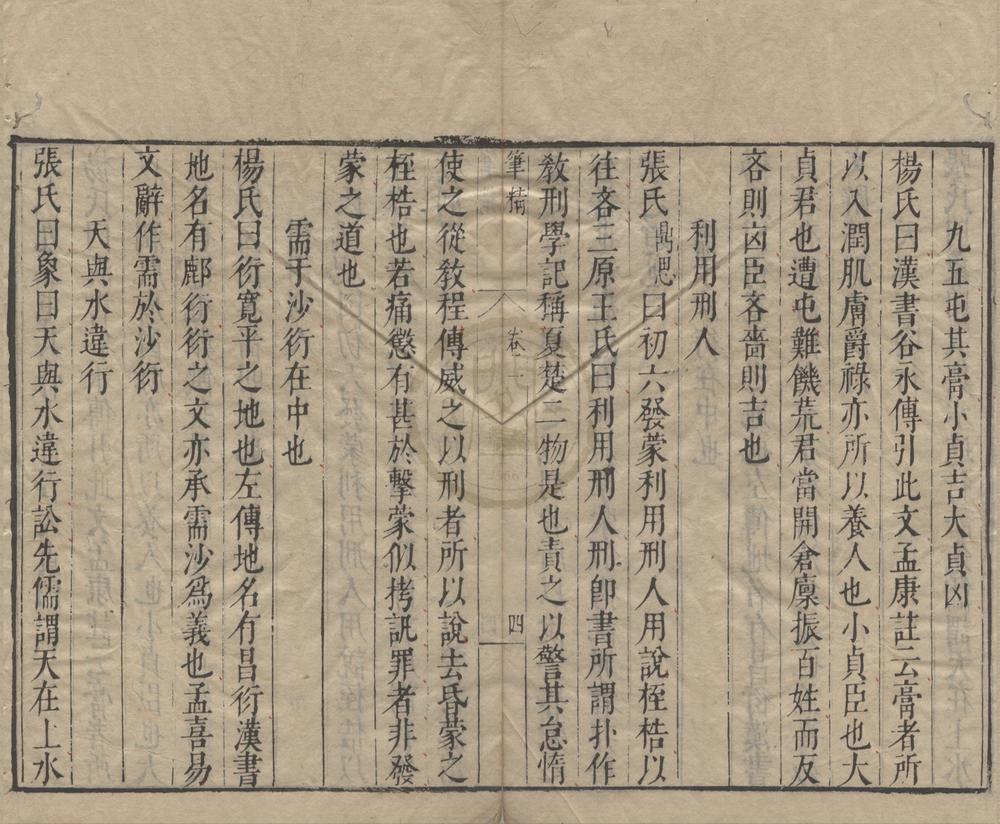 九五屯其膏小貞吉大貞凶
楊氏曰漢書谷永傳引此文孟康註云膏者所
以入潤肌膚爵祿亦所以養人也小貞臣也大
貞君也遭屯難饑荒君當開倉廩振百姓而反
吝則凶臣吝嗇則吉也
利用刑人
張氏鼎思曰初六發蒙利用刑人用說桎梏以
往吝三原王氏曰利用刑人刑卽書所謂扑作
教刑學記稱夏楚二物是也責之以警其怠惰
筆精 卷一 四
使之從教程傳威之以刑者所以說去昏蒙之
桎梏也若痛懲有甚於擊蒙似拷訊罪者非發
蒙之道也
需于沙衍在中也
楊氏曰衍寬平之地也左傳地名有昌衍漢書
地名有鄜衍衍之文亦承需沙爲義也孟喜易
文辭作需於沙衍
天與水違行
張氏曰象曰天與水違行訟先儒謂天在上水